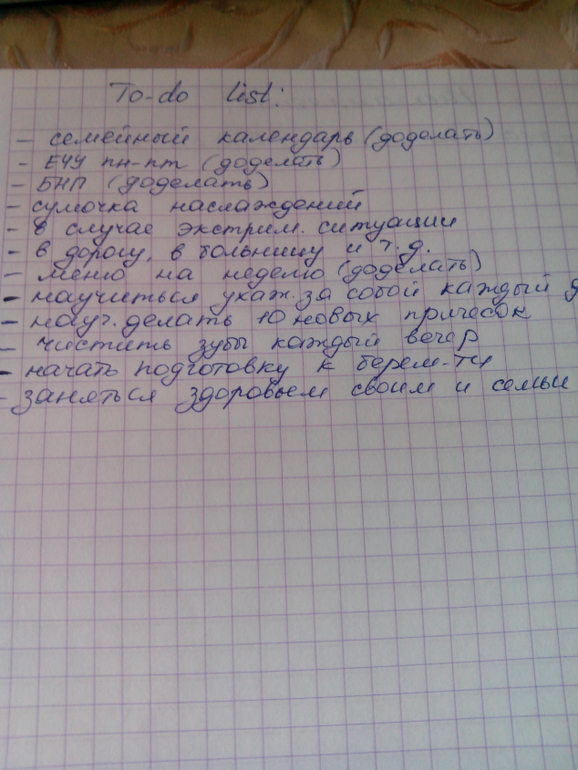 To-do list:
- семейный календарь (доделать)
- ЕЧУ пн-пт (доделать)
- БНП (доделать)
- сумочка наслаждений
- в случае экстрим. ситуации
- в дорогу, в больницу и т.д.
- меню на неделю (доделать)
- научиться ухаж. за собой каждый д
- науч. делать 10 новых причесок
- чистить зубы каждый вечер
- начать подготовку к берем-ти
- заняться здоровьем своим и семьи